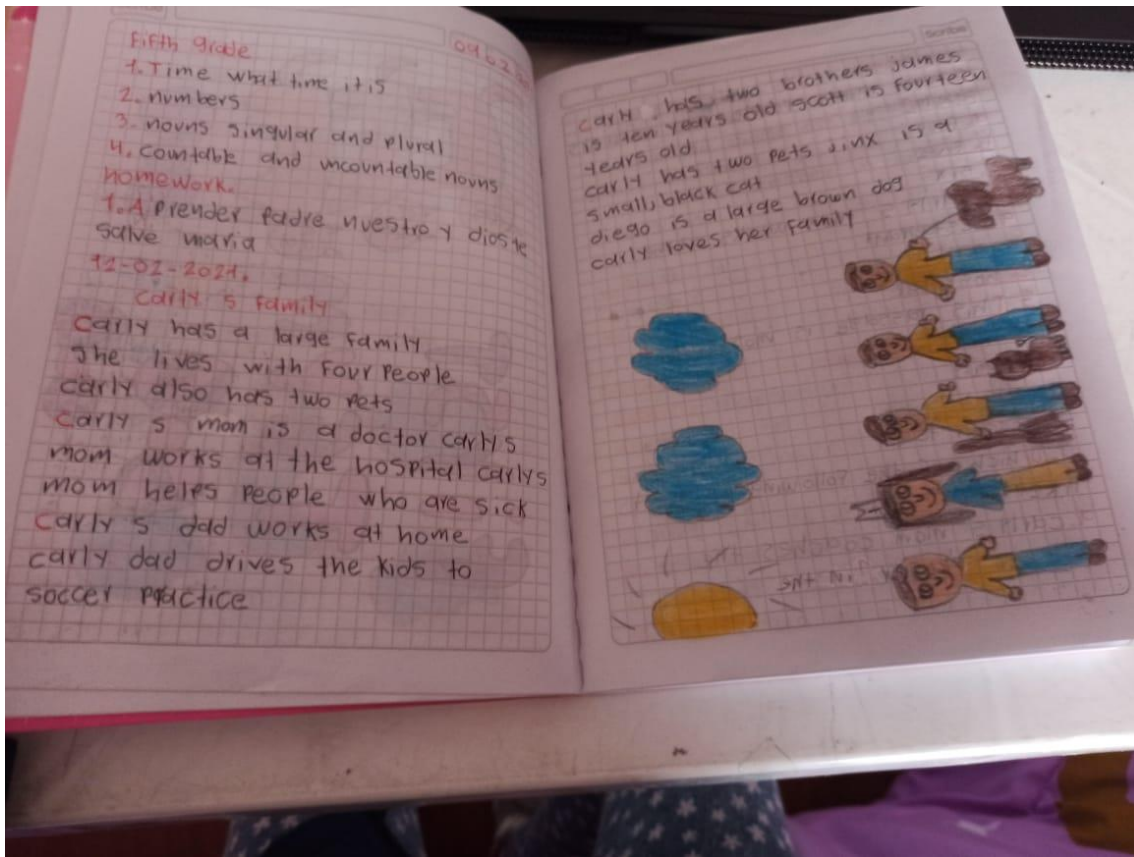 Fifth grade
1. Time what time it is
2. numbers
3. nouns singular and plural
4. countable and uncountable nouns
homework.
1. Aprender padre nuestro y dios te
salve maria
12-02-2021.
carly s family
carly has a large family
She lives with four people
carly also has two pets
carly s mom is a doctor carly s
mom works at the hospital carlys
mom helps people who are sick
carly s dad works at home
carly dad drives the kids to
soccer practice
Scribe
carly has two brothers james
is ten years old scott is fourteen
years old
carly has two pets Jinx is a
small, black cat
diego is a large brown dog
carly loves her family